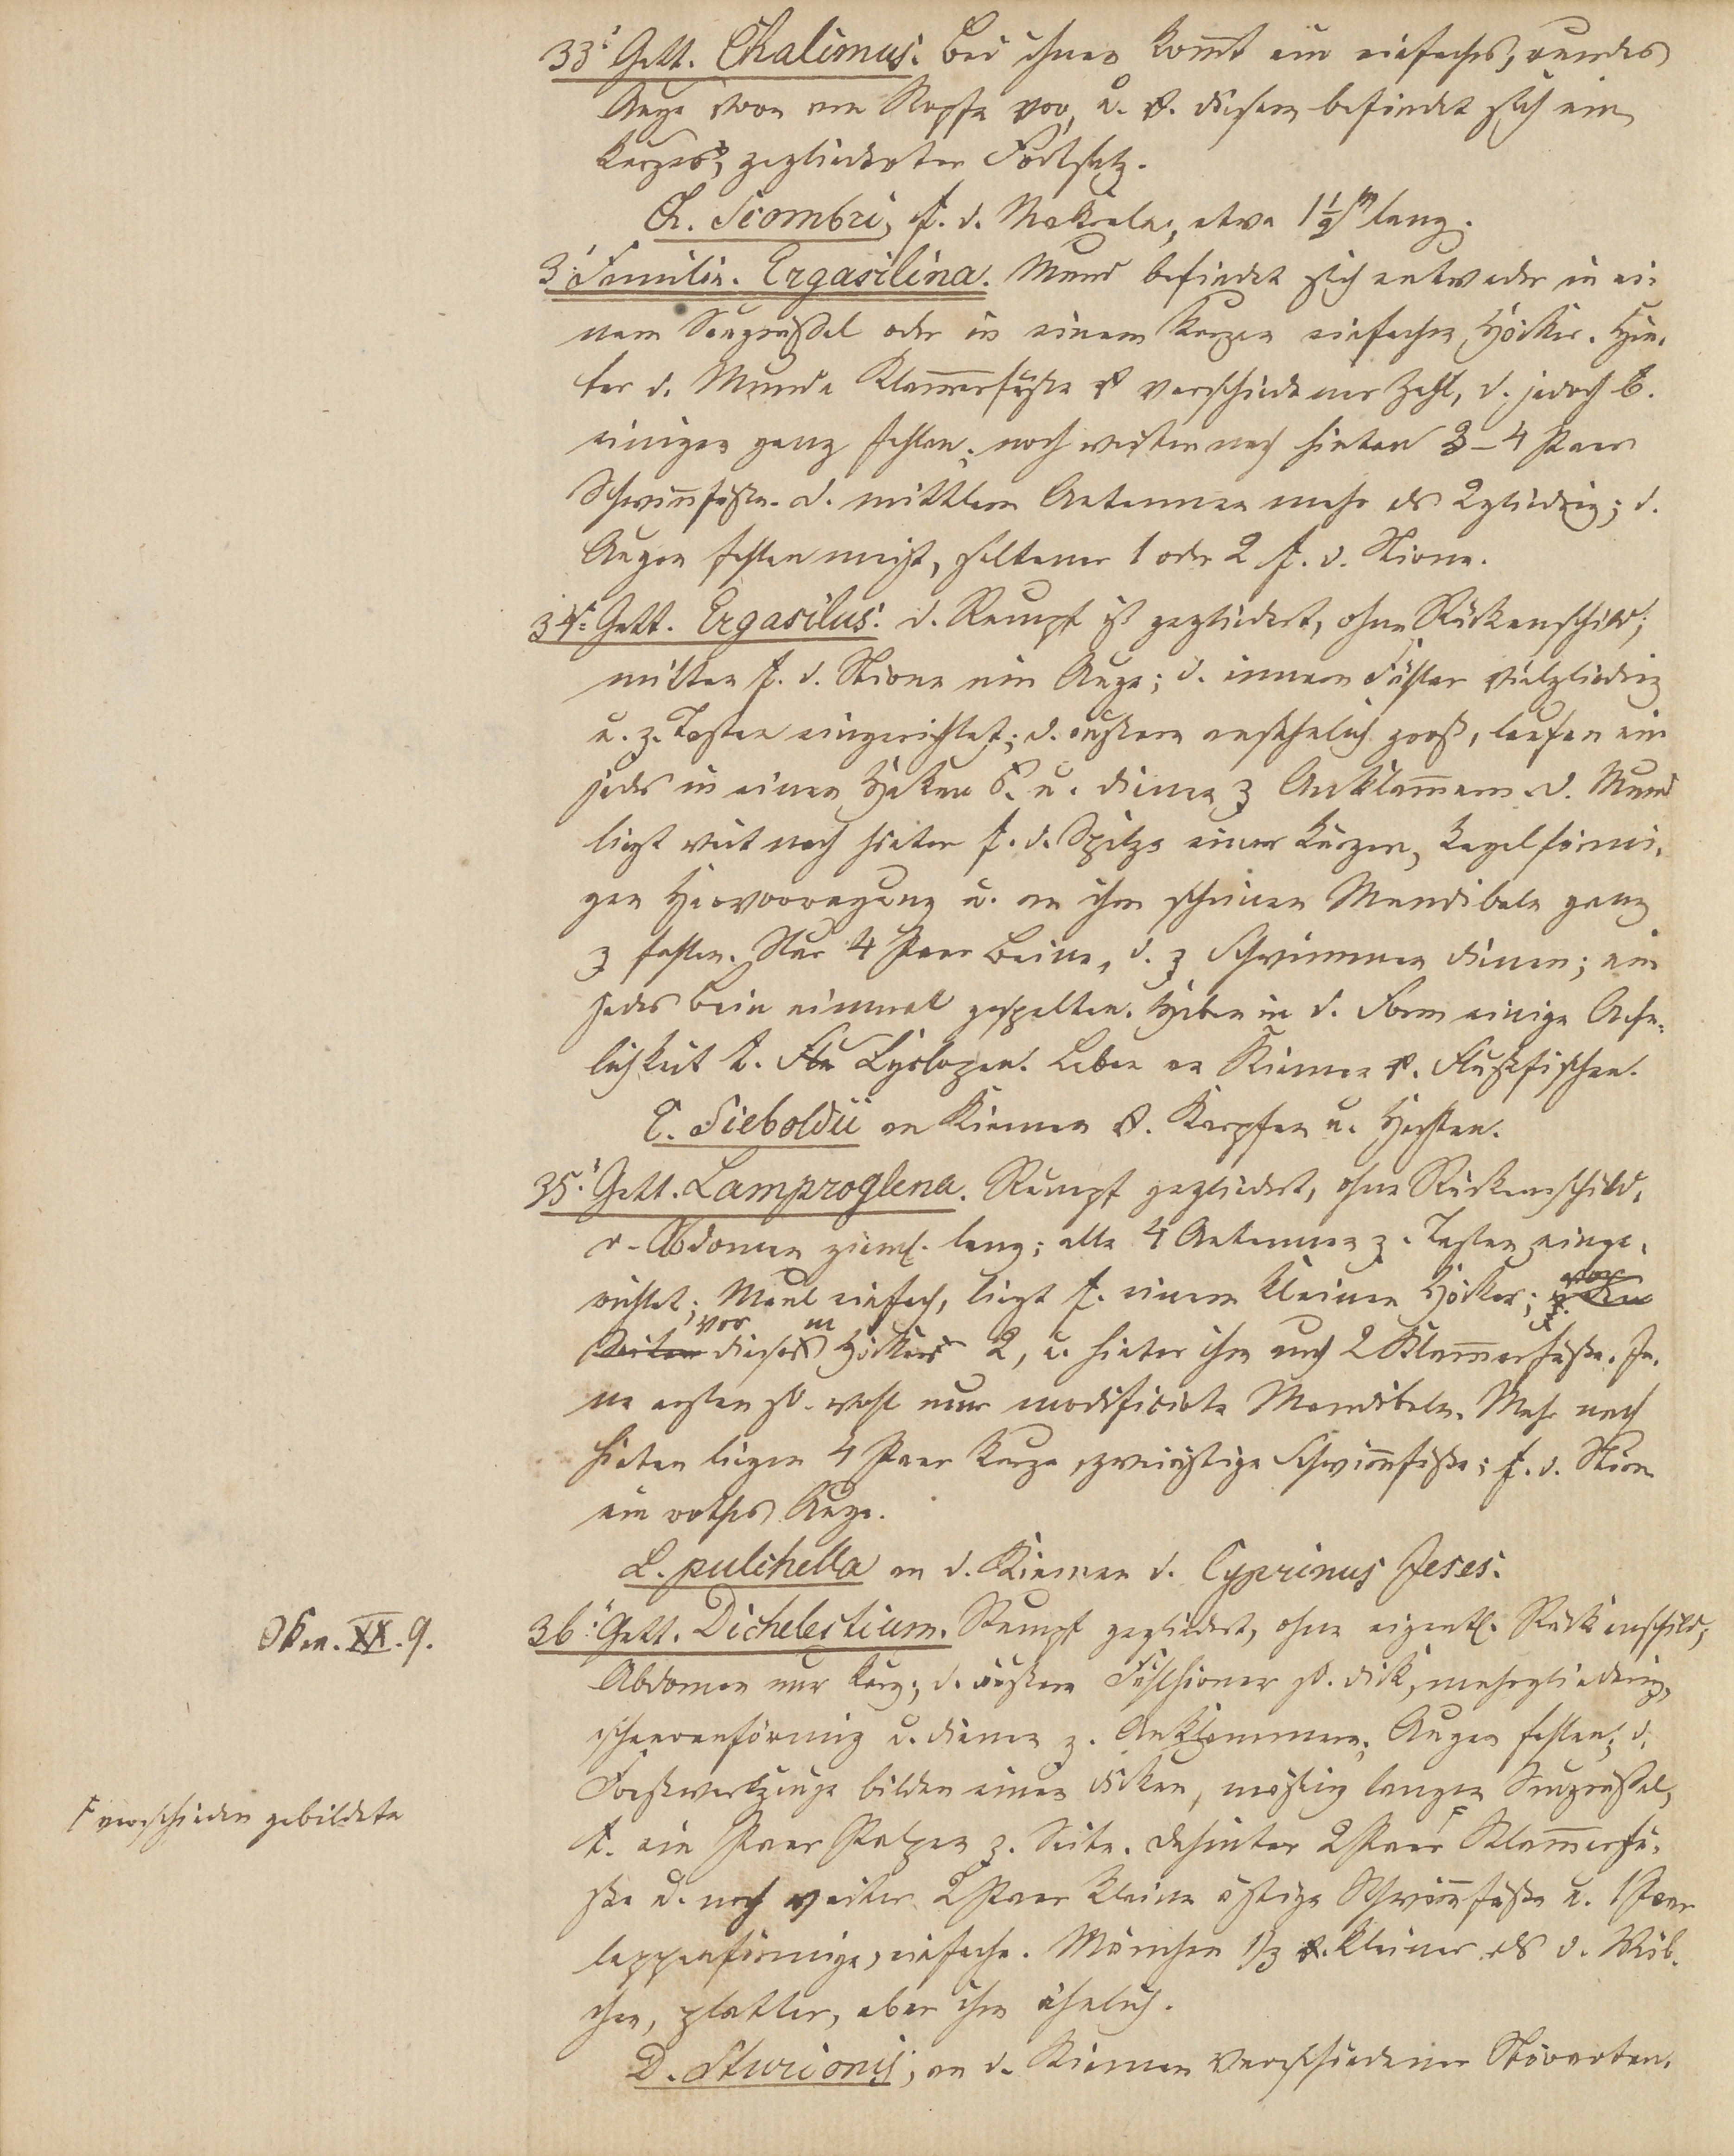 33. Gatt. Chalimus. Bei ihnen kommt ein einfaches, rundes
Auge vorn am Kopfe vor, u. v. diesem befindet sich ein
kurzer, gegliederter Fortsatz.
Ch. Scombri, f. d. Makrele, etwa 1½''' lang.
3. Familie. Ergasilina. Mund befindet sich entweder in ei-
nem Saugrüssel oder in einem kurzen einfachen Höcker. Hin-
ter d. Munde Klam̅erfüsse v verschiedener Zahl, d. jedoch b.
einigen ganz fehlen; noch weiter nach hinten 3–4 Paar
Schwim̅füsse. D. mittlern Antennen mehr als 2gliedrig; d.
Augen fehlen meist, seltener 1 oder 2 f. d. Stirne.
34. Gatt. Ergasilus. D. Rumpf ist gegliedert, ohne Rückenschild;
mitten f. d. Stirne ein Auge; d. innern Fühler vielgliedrig
u. z. Tasten eingerichtet; d. äussern ansehnlich gross, laufen ein
jedes in einen Haken s. u. dienen z Anklam̅ern. D. Mund
liegt weit nach hinten f. d. Spitze einer kurzen, kegelförmi-
gen Hervorragung u. an ihm scheinen Mandibeln ganz
z fehlen. Nur 4 Paar Beine, d. z Schwimmen dienen; ein
jedes Bein einmal gespalten. Haben in d. Form einige Aehn-
lichkeit t. Cyclopen. Leben an Kiemen v. Flussfischen.
E. Sieboldii an Kiemen v. Karpfen u. Hechten.
35. Gatt. Lamproglena. Rumpf gegliedert, ohne Rückenschild,
d. Abdomen zieml. lang; alle 4 Antennen z. Tasten einge-
richtet; Maul einfach, liegt f. einem kleinen Höcker;
vor diesem Höcker 2, u. hinter ihm auch 2 Klam̅erfüsse. Je-
ne ersten sd. wohl nur modificirte Mandibeln. Mehr nach
hinten liegen 4 Paar kurze, zweiästige Schwim̅füsse; f. d. Stirn
ein rothes Auge.
L. pulchella an d. Kiemen d. Cyprinus Jeses.
Oken. XX. 9.
36. Gatt. Dichelestium. Rumpf gegliedert, ohne eigentl. Rückenschild;
Abdomen nur kurz; d. äussern Fühlhörner sd. dick, mehrgliedrig,
scheerenförmig u. dienen z. Anklammern; Augen fehlen; d.
Fresswerkzeuge bilden einen dicken, mässig langen Saugrüssel,
t. ein Paar Palpen z. Seite. Dahinter 2 Paar Ϝ Klam̅erfü-
Ϝ verschieden gebildete
sse u. noch weiter 2 Paar kleine ästige Schwim̅füsse u. 1 Paar
lappenförmige, einfache. Mänchen 1/3 kleiner als d. Weib-
chen, platter, aber ihm ähnlich.
D. Sturionis, an d. Kiemen verschiedener Störarten.